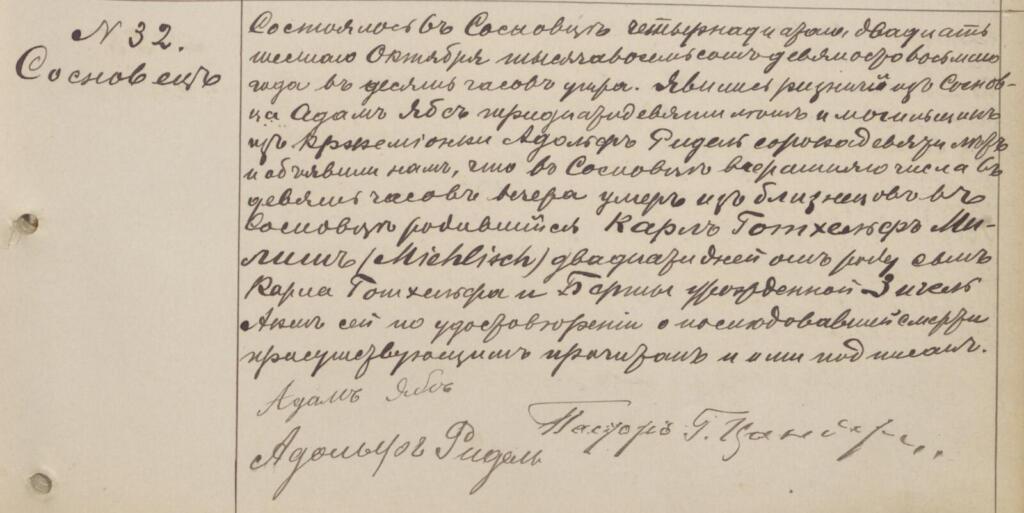 N 32.
Сосновецъ
Состоялось въ Сосновцѣ четырнадцатаго, двадцать
шестаго Октября тысяча восемьсотъ девяносто восьмаго
года въ десять часовъ утра. Явились ризничій изъ Соснов-
ца Адамъ Ябсъ тридцати девяти лѣтъ и могильщикъ
изъ Кржеміонки Адольфъ Ридель сорока девяти лѣтъ
и объявили намъ, что въ Сосновцѣ вчерашняго числа въ
девять часовъ вечера умеръ изъ близнецовъ въ
Сосновцѣ родившійся Карлъ Готхельфъ Ми-
лишъ (Michlisch) двадцати дней отъ роду сынъ
Карла Готхельфа и Берты урожденной
Актъ сей по удостовѣреніи о послѣдовавшей смерти
присутствующимъ прочитанъ и ими подписанъ.
Адамъ Ябсъ
Пасторъ Г.
Адольфъ Ридель